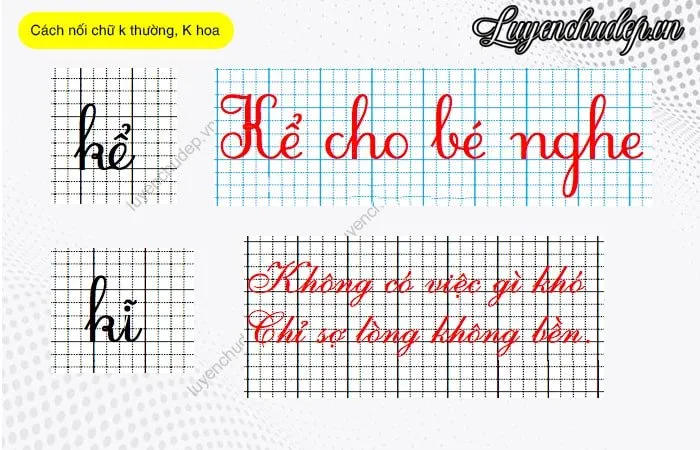 Cách nối chữ k thường, K hoa
Luyenchudep.vn
kể
Kể cho bé nghe
luyenchudep.vn
kĩ
Không có việc gì khó
Chỉ sợ lòng không bền.
luyenchudep.vn